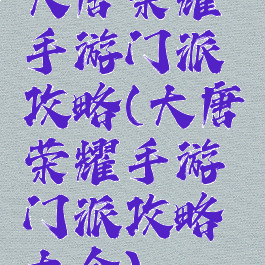 大唐荣耀
手游门派
攻略(大唐
荣耀手游
门派攻略
大全)